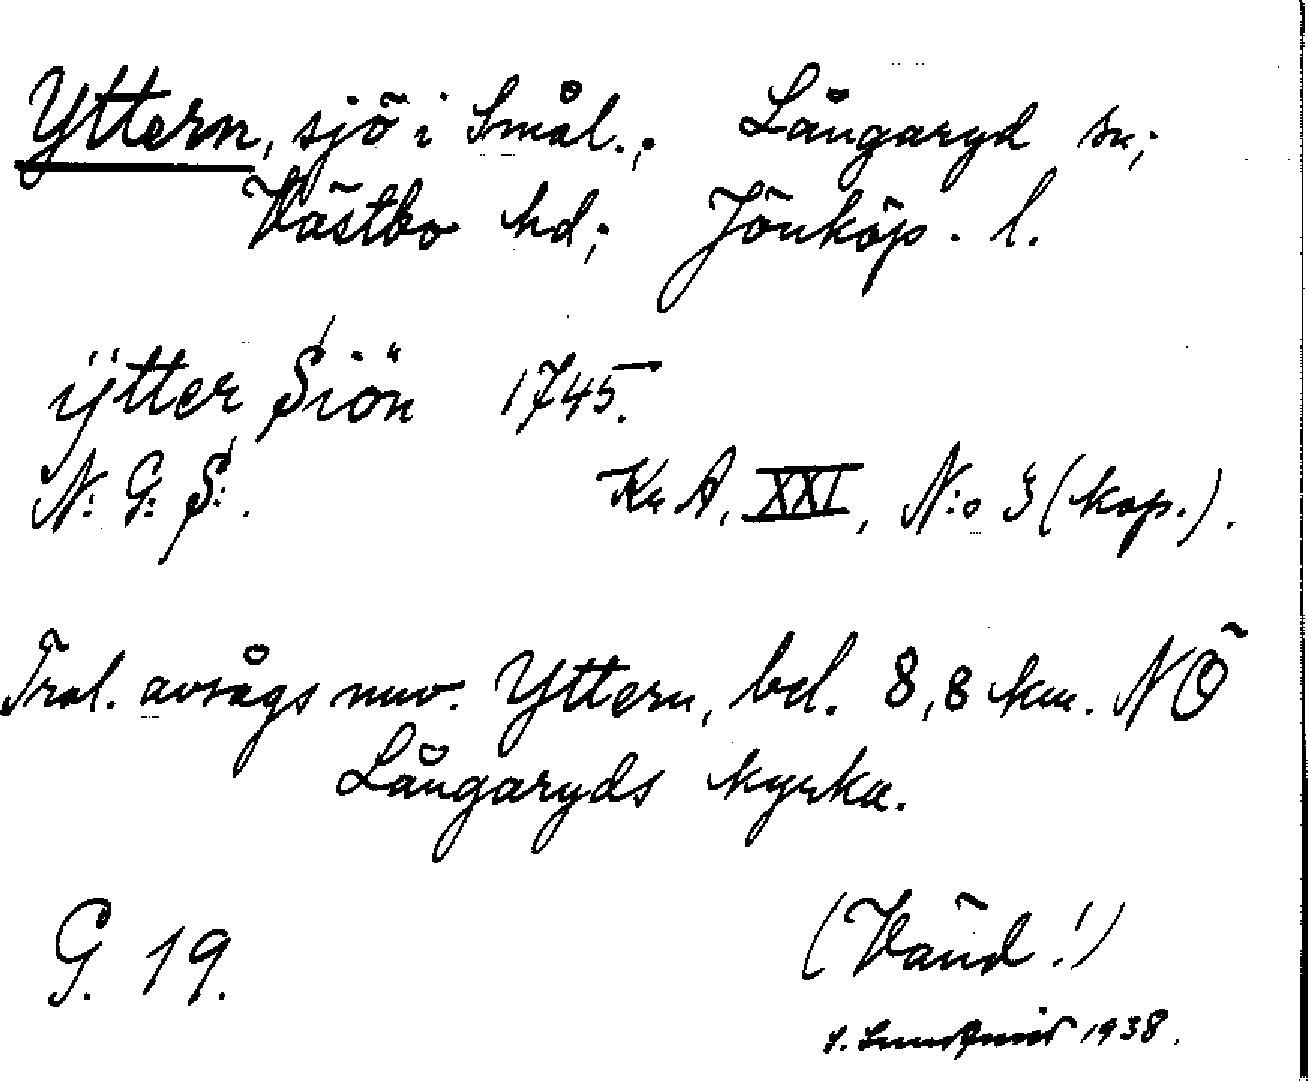 Yttern, sjö i Smål.; Långaryd sn;
Västbo hd; Jönköp. l.
ÿtter Siön 1745.
N: G: S:. Kr A, XXI, N:o 3 (kop.).
Trol. avsågs nuv. Yttern, bel. 8,8 km. NÖ
Långaryds kyrka.
G. 19. (Vänd!)
1938.